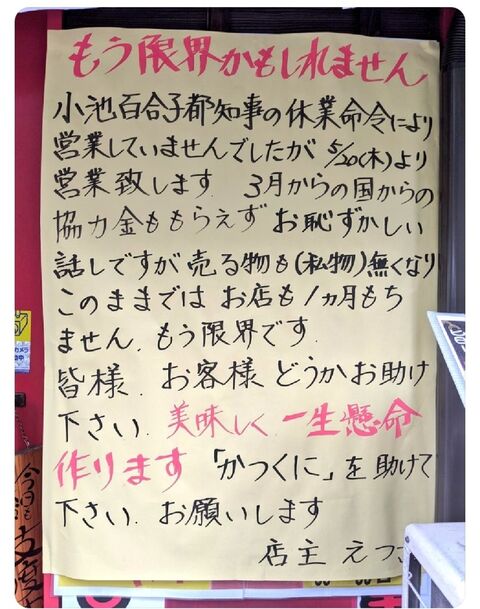 もう限界かもしれません
小池百合子都知事の休業命令により
営業していませんでしたが 5/20(木)より
営業致します. 3月からの国からの
協力金ももらえず お恥ずかしい
話しですが 売る物も(私物)無くなり
このままでは お店も1ヵ月もち
ません. もう限界です.
皆様. お客様 どうかお助け
下さい. 美味しく 一生懸命
作ります 「かつくに」を助けて
下さい. お願いします
店主 えつ
カメラ
今日も